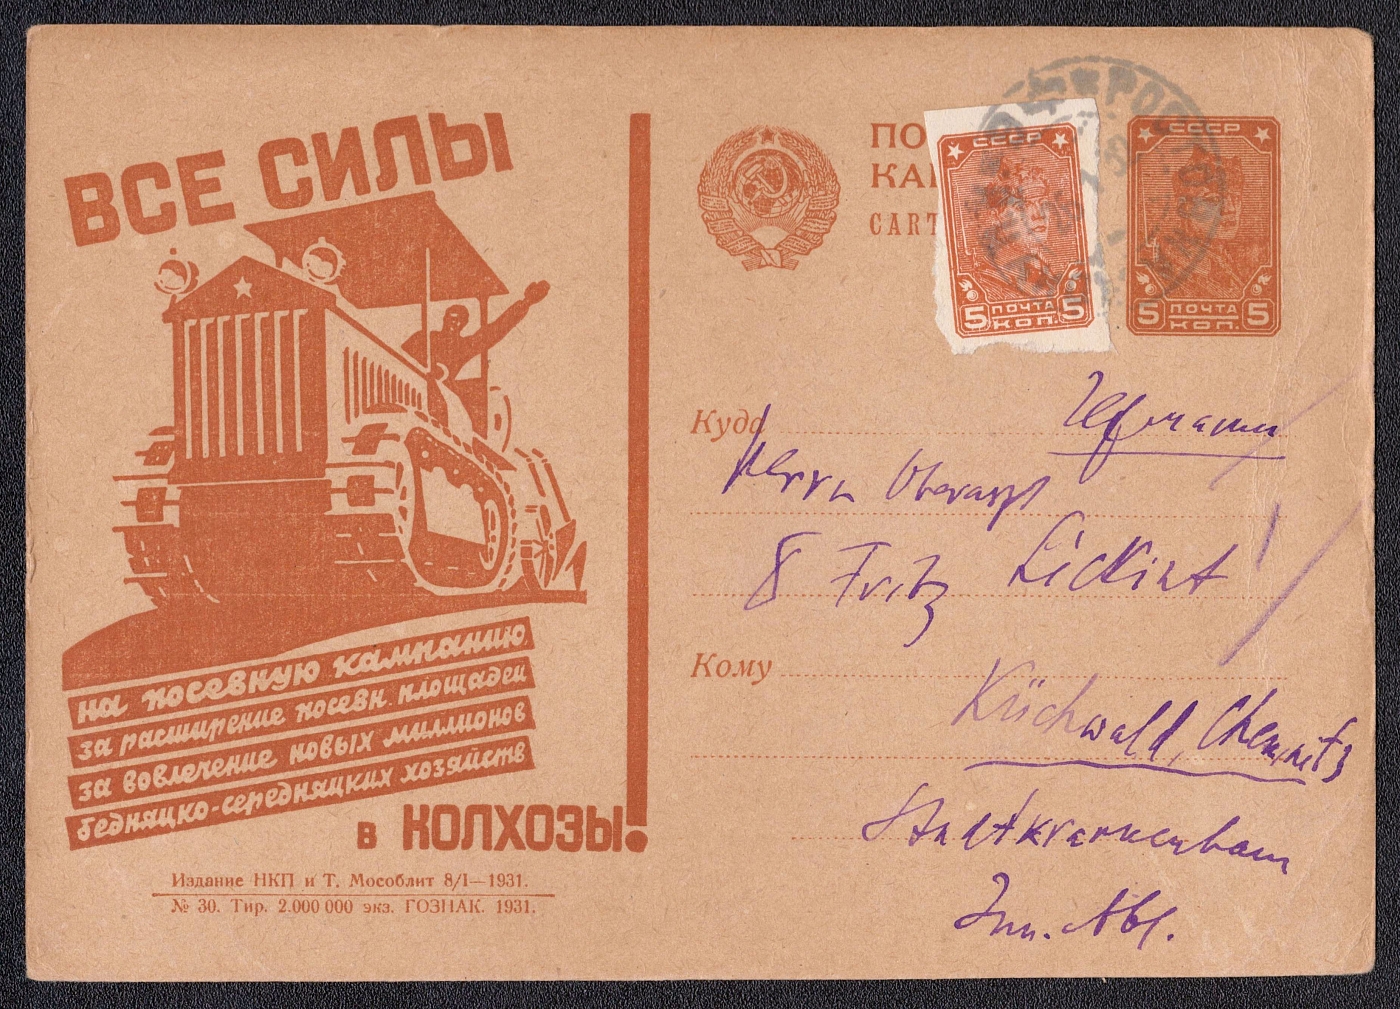 ВСЕ СИЛЫ
на посевную кампанию
за расширение посевн. площадей
за вовлечение новых миллионов
бедняцко-середняцких хозяйств
в КОЛХОЗЫ!
Издание НКП и Т. Мособлит 8/I—1931.
№ 30. Тир. 2.000 000 экз. ГОЗНАК. 1931.
ПО
КА
CART
СССР
ПОЧТА
5 КОП. 5
СССР
ПОЧТА
5 КОП. 5
Куда
Herrn
Fritz Lickint
Кому
Küchwald, Chemnitz
Stadtkrankenhaus
Inn. Abt.